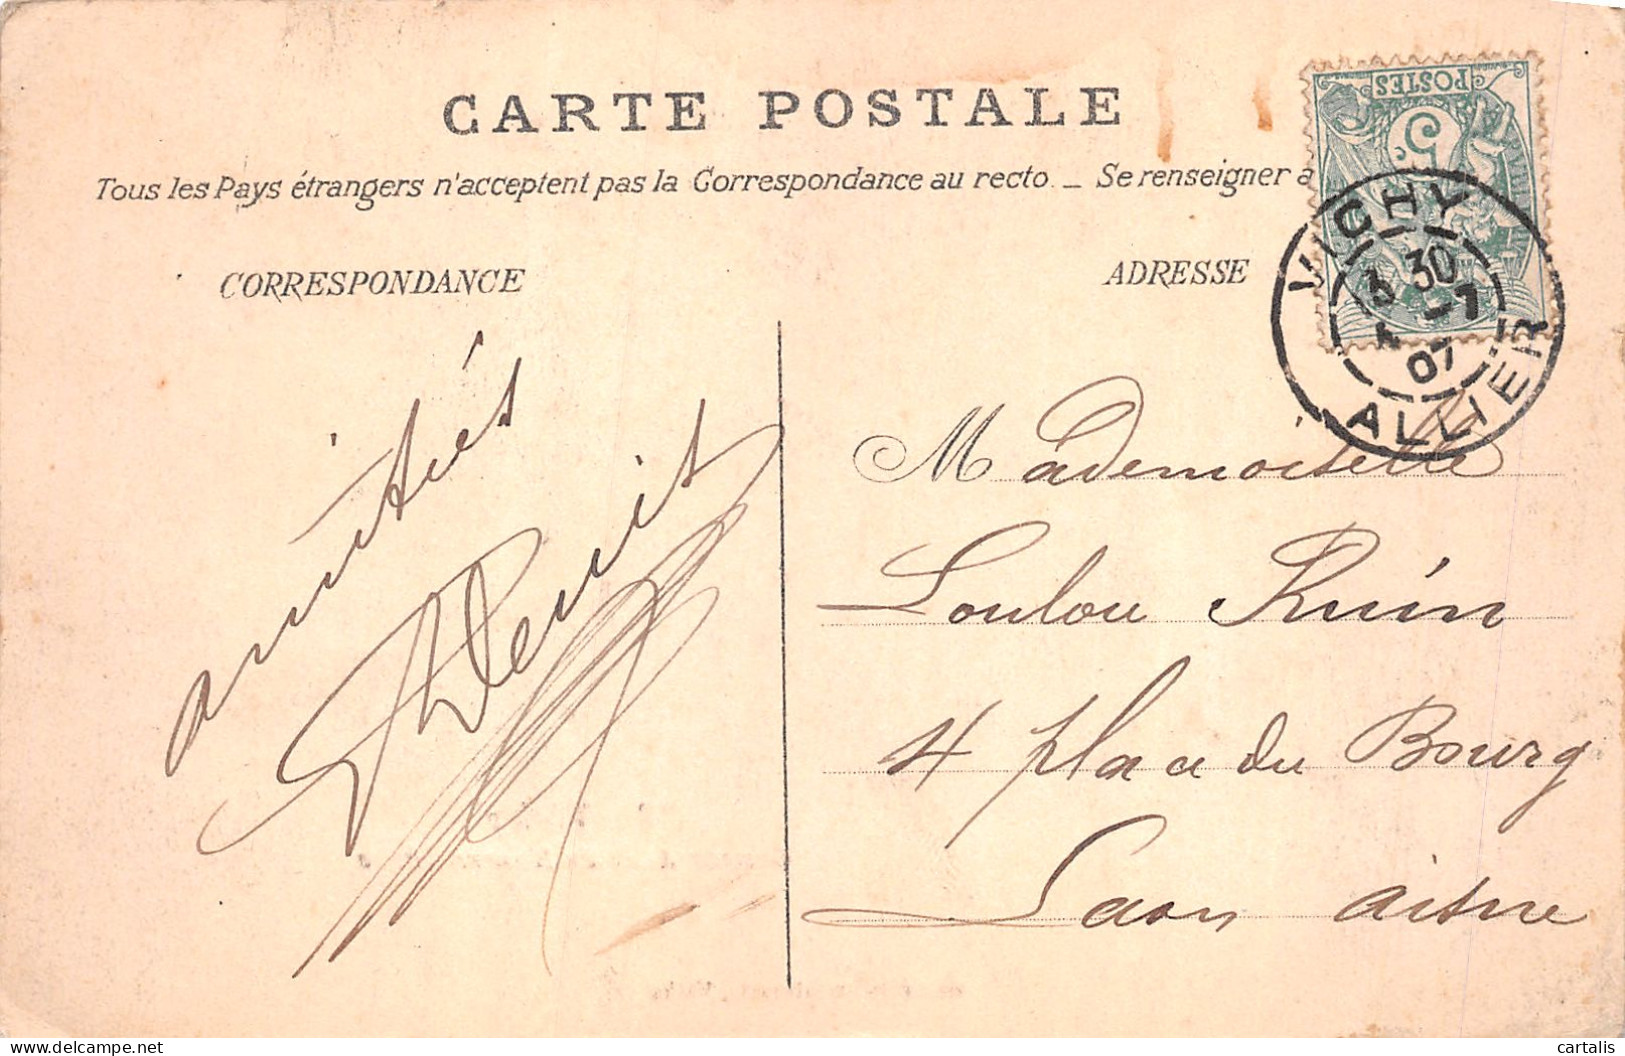 CARTE POSTALE
Tous les Pays étrangers n'acceptent pas la Correspondance au recto. _ Se renseigner à
CORRESPONDANCE
ADRESSE
POSTES
5
VICHY
3 30
-7
07
ALLIER
amitiés
Mademoiselle
Loulou
4 place du Bourg
Laon aisne
cartalis
delcampe.net